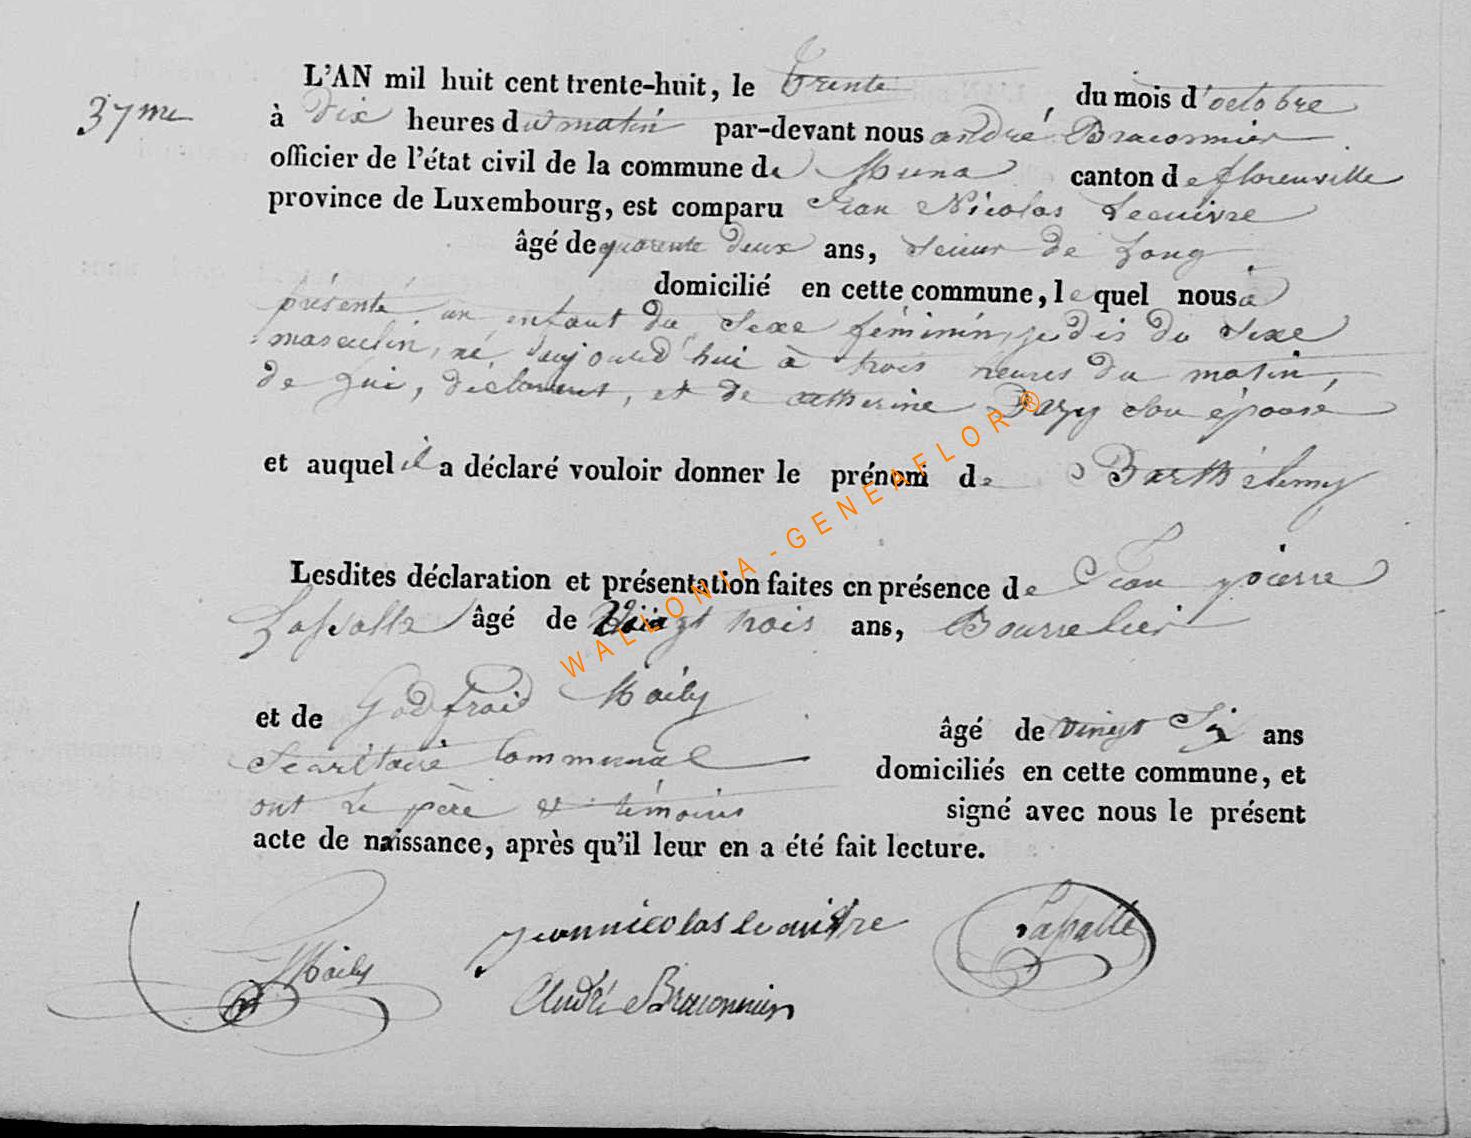 L'AN mil huit cent trente-huit, le trente du mois d'octobre
37me
à dix heures du matin par-devant nous andré Braconnier
officier de l'état civil de la commune de Muno canton de florenville
province de Luxembourg, est comparu Jean Nicolas Lecuivre
âgé de quarente deux ans, Scieur de Long
domicilié en cette commune, lequel nous a
présenté un enfant du Sexe féminin, je dis du Sexe
masculin, né aujourd'hui à trois heures du matin,
de lui, déclarant, et de catherine Dazy Son épouse
et auquel il a déclaré vouloir donner le prénom de Barthélemy
Lesdites déclaration et présentation faites en présence de Jean pierre
Lassalle âgé de Vingt trois ans, Bourrelier
et de Godfroid Maily âgé de vingt Six ans
Secrétaire Communal domiciliés en cette commune, et
ont Le père & témoins signé avec nous le présent
acte de naissance, après qu'il leur en a été fait lecture.
Maily jeannicolas lecuivre Lassalle
André Braconnier
WALLONIA-GENEAFLOR®